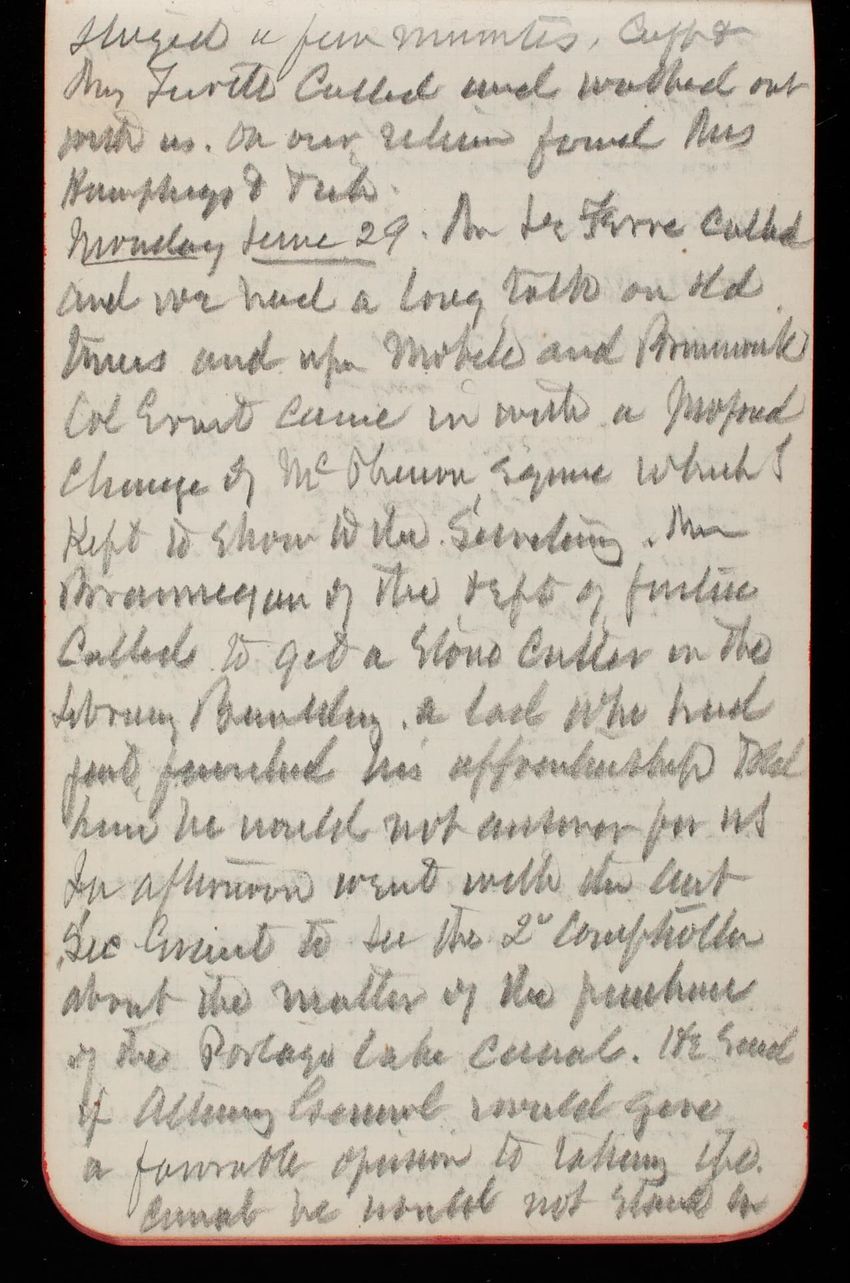 stayed a few minutes. Capt &
Mrs Turtle Called and walked out
with us. On our return found Mrs
Humphreys &
Monday June 29. Mr Le Ferre Called
and we had a long talk on old
times and upon Mobile and Brunswick
Col Ernst came in with a proposed
Change of McPherson Square which I
Kept to show to the Secretary. Mr
Brannegan of the Dept of Justice
Called to get a Stone Cutter in the
Library Building. a lad who had
just finished his apprenticeship Told
him he would not answer for us
In afternoon went with the Act
Sec Grant to see the 2d Comptroller
about the matter of the purchase
of the Portage Lake Canal. He said
if Attorney General would give
a favorable opinion to taking the
Canal he would not stand in